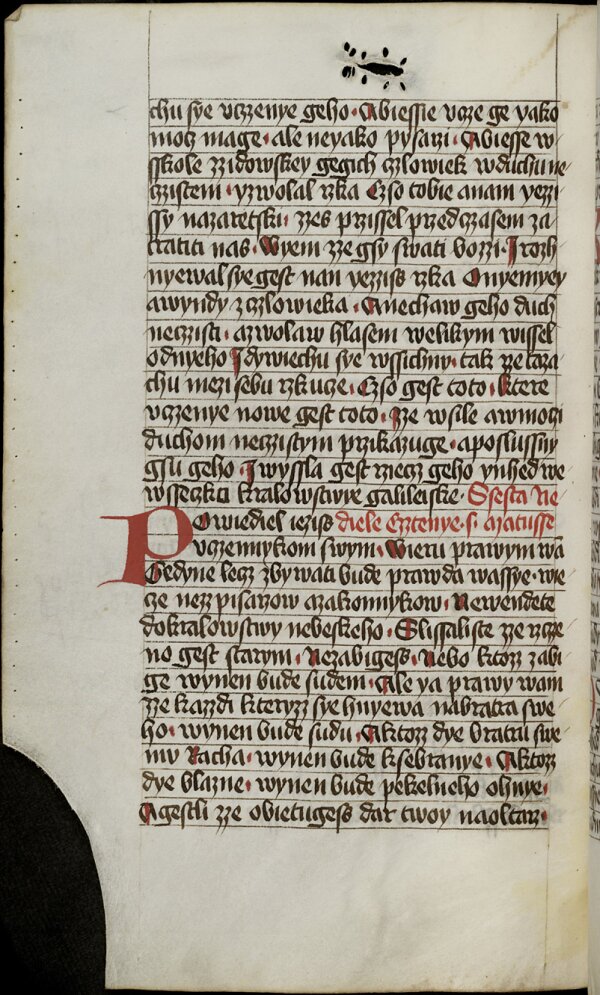 chu sye vczenye geho · Abiessie vcze ge yako
mocz mage · ale neyako pysarzi · Abiesse w
sskole zzidowskey gegich czlowiek wduchu ne
czistem · yzwolal rzka Czso tobie anam yezzi
ssy nazaretski · zzes przissel przed czasem za
tratiti nas · Wyem zze gsy swati bozzi · I rozh
nyewal sye gest nan yezziss rzka Onyemyey
awyndy zczlowieka · Anechaw geho duch
neczisti · azwolaw hlasem welikym wissel
odnyeho Idywiechu sye wssichny · tak zze taza
chu mezi sebu rzkucze · Czso gest toto · ktere
vczenye nowe gest toto · Zze wsile awmoczi
duchom neczistym przikazuge · aposlussny
gsu geho · I wyssla gest rziecz geho ynhed we
wsseczkti kralowstwye galileiske · Ssesta ne
Powiediel ieziss diele Cztenye · s · Matusse
vczennykom swym · Wieru prawym wā
Gedyne lecz zbywati bude prawda wassye · wie
cze nezz pisarzow azakonnykow · Newendete
dokralowstwy nebeskeho · Slissaliste zze rzcze
no gest starym · Nezabigess · Nebo ktozz zabi
ge wynen bude sudem · Ale ya prawy wam
zze kazzdi kteryzz sye hnyewa nabratra swe
ho · wynen bude sudu · Aktozz dye bratru swe
mv Racha · wynen bude ksebranye · Aktozz
dye blazne · wynen bude pekelneho ohnye ·
Agestli zze obietugess dar twoy naoltarz ·